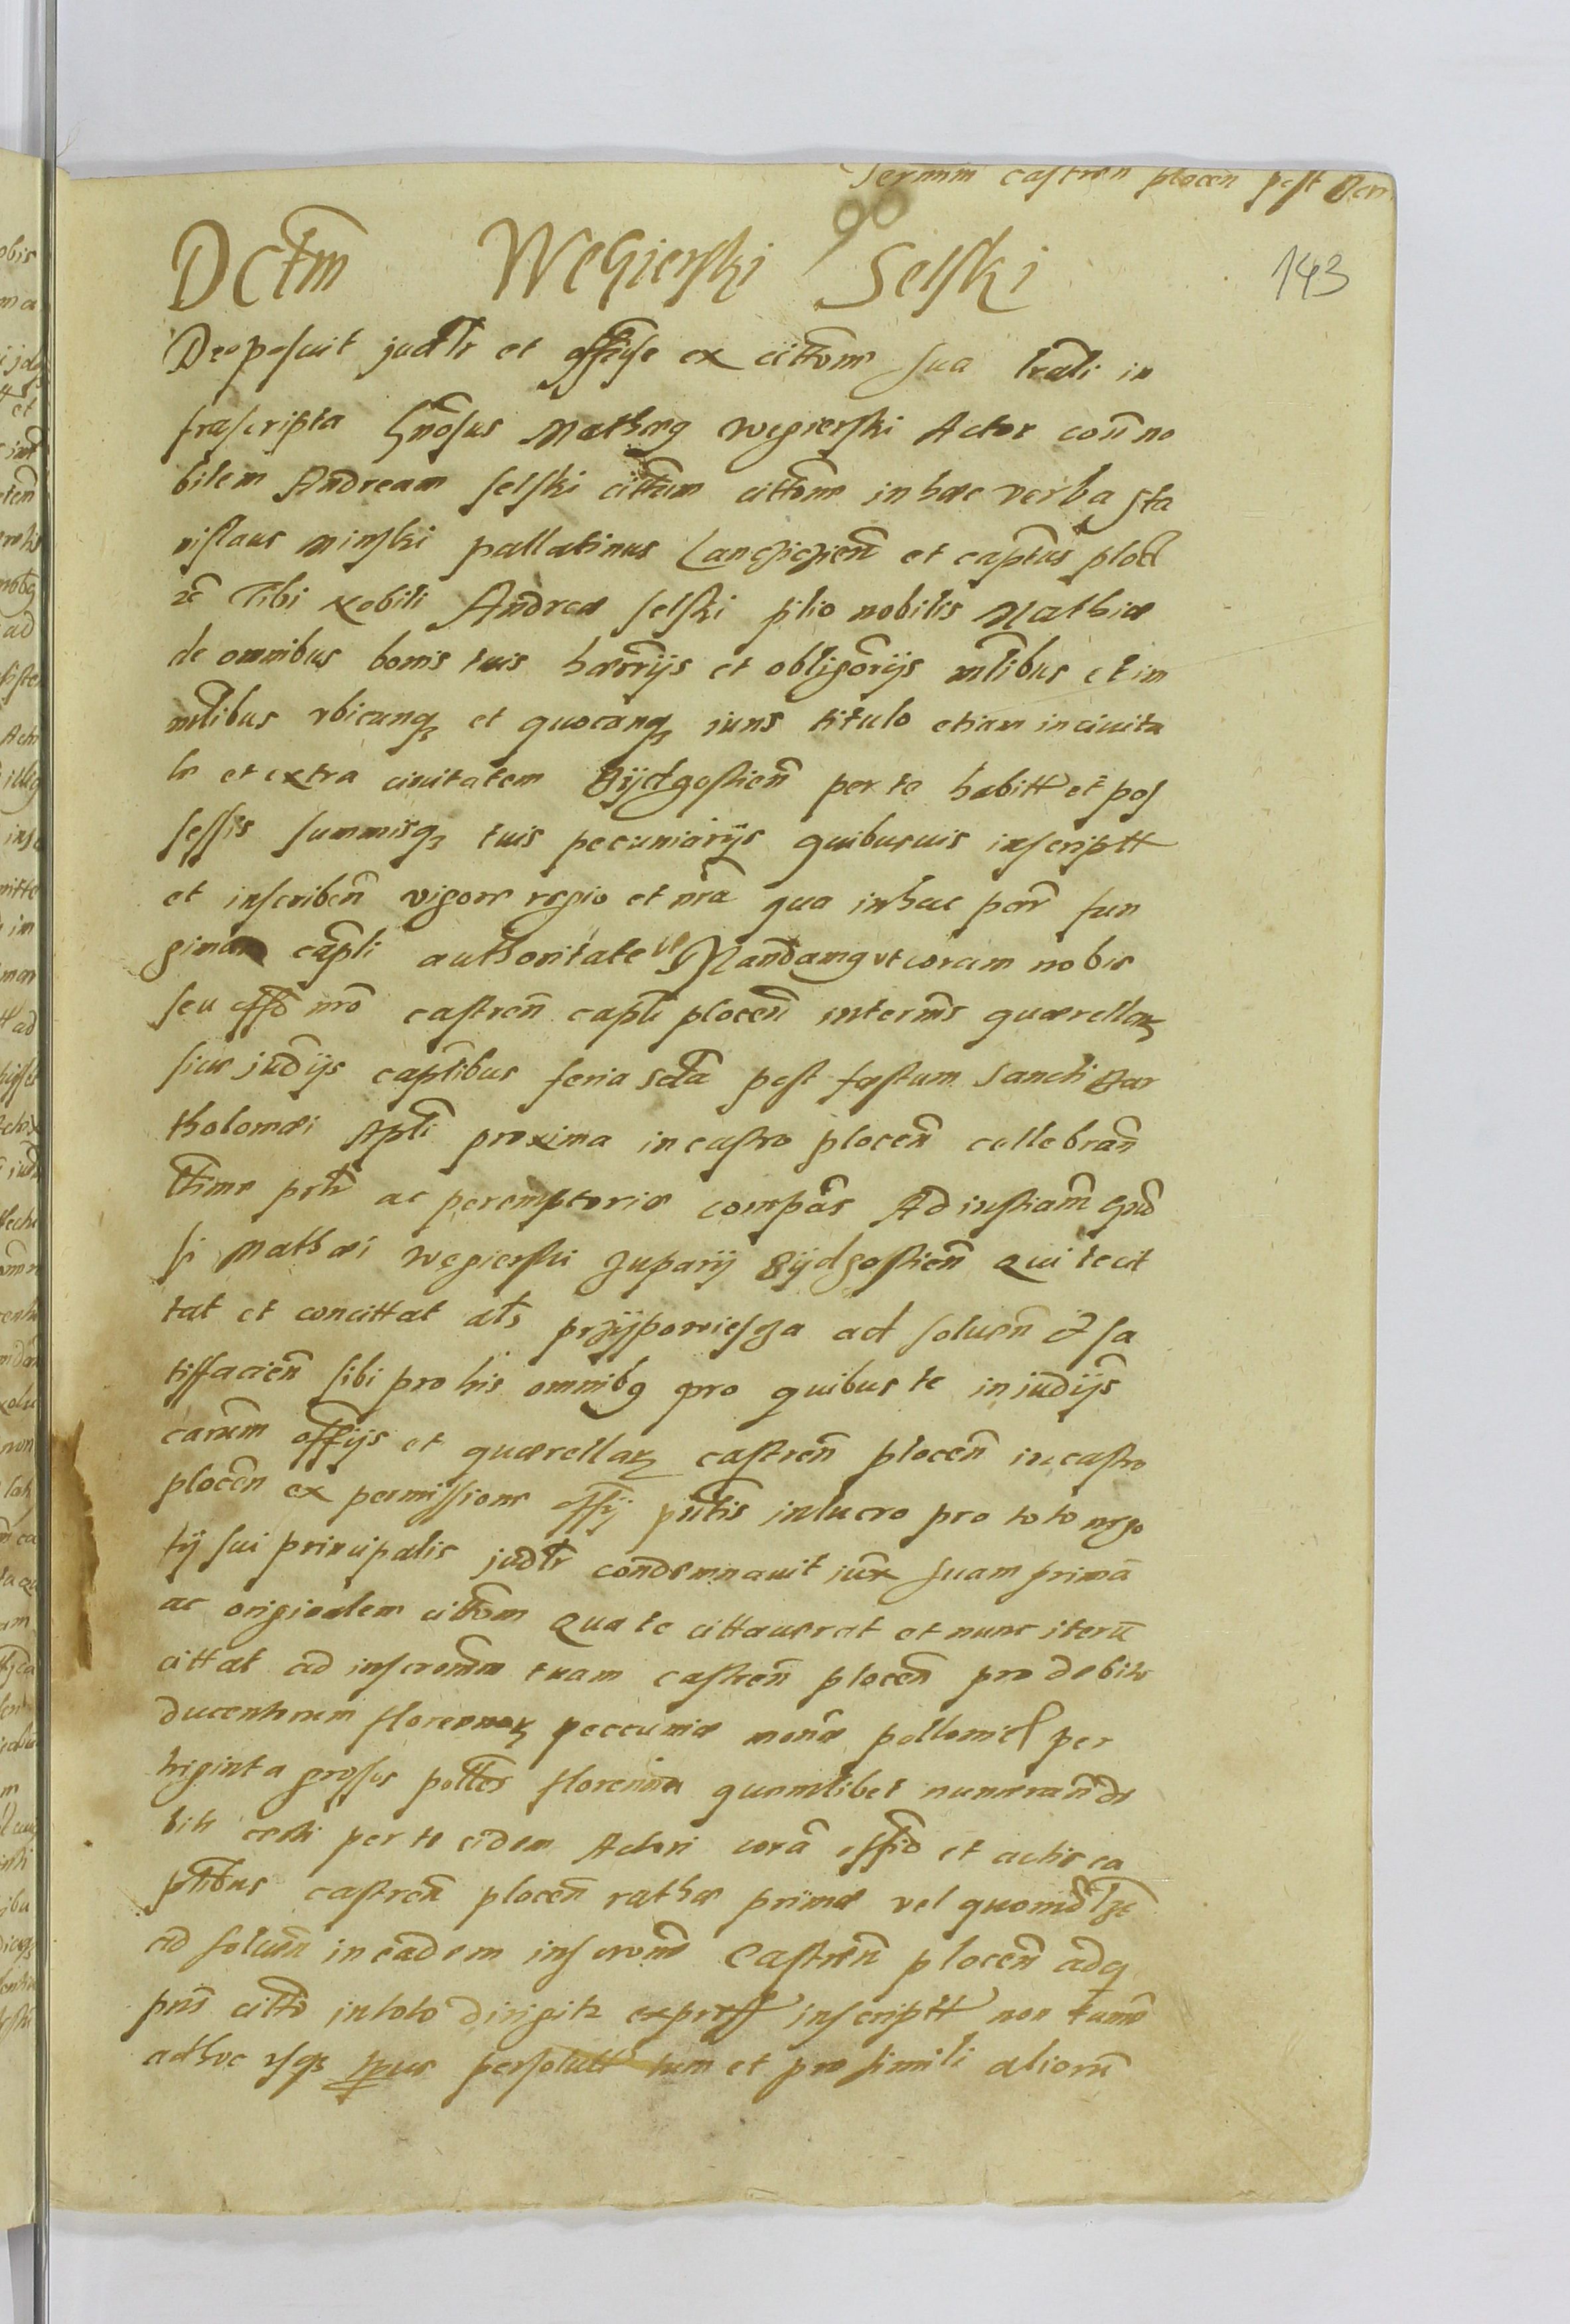 Termin castren plocen post Bar
90
143
Dctm Wegierski Selski
Deposuit judtr et offose ex cittone sua lrali in
frascripta Gnosus Mathęg wegierski Actor con no
bilem Andream selski cittum cittone in hæc verba Sta
nislaus minski pallatinus Lanczicien et captus ploc
zc Tibi Nobili Andreæ selski filio nobilis Mathiæ
de omnibus bonis tuis hærrijs et obligorijs mlibus et im
mlibus vbicunqz et quocunqz iuris titulo etiam in ciuita
te et extra ciuitatem Bijdgostien per te habitt et pos
sessis summisqz tuis pecuniarijs quibusuis inscriptt
et inscriben vigore regio et nra qua in hac per fun
gimur capli authoritate Mandamg vt coram nobis
seu offo nro castren capli plocen in termis quærellarz
siue judijs captlibus feria scda post fæstum Sancti Bar
tholomæi Apli proxima in castro plocen cellebran
ttime prtr ac peremptorie compas Ad instiam gno
si Mathæi wegierski zuparij Bijdgostien Qui te cit
tat et concittat als przijpowiesza ad soluen & sa
tiffacien sibi pro his omnibg pro quibus te in iudijs
carum offijs et quærellarz castren plocen in castro
plocen ex permissione offij pntis in lucro pro toto nego
tij sui principalis judtr condemnauit iux suam prima
ac originalem cittom Qua te cittauerat et nunc iteru
cittat ad inscronem tuam castren plocen pro debito
ducentorum florenorz peccuniæ monæ pollonicl per
triginta grossos polles florenum quemlibet numerando
biti certi per te eidem Actori cora offo et actis ca
ptlibus castren plocen rathæ primæ vel quomdlzt
ad soluen in eadem inscrone Castren plocen adq
pns citto in toto dirigitr expross inscriptt non tamen
adhuc vsqz persolutt tum et pro simili aliorum